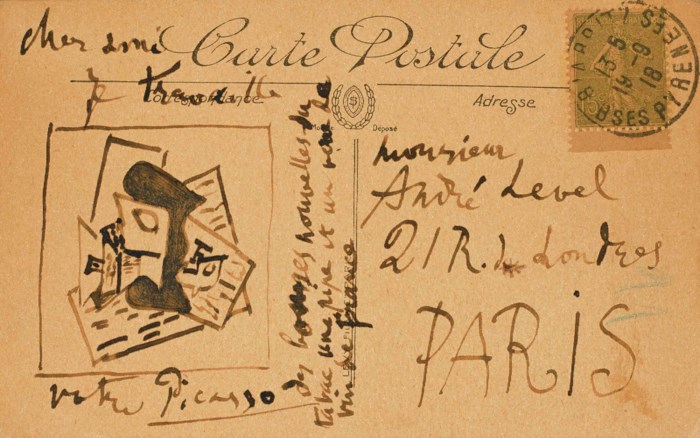 Carte Postale
Correspondance
Adresse
Déposé
cher ami
je travaille
votre Picasso
des bonnes nouvelles du
tabac une pipe et un verre de
vin de france
Monsieur
André Level
21 R. de Londres
PARIS
BIARRITZ
13 5
19-9
18
BSES PYRENEES